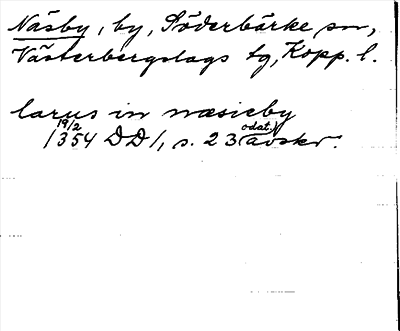 Näsby, by, Söderbärke sn,
Västerbergslags tg, Kopp. l.
larus in næsieby
19/2 odat.
1354 DD1, s. 23 avskr.